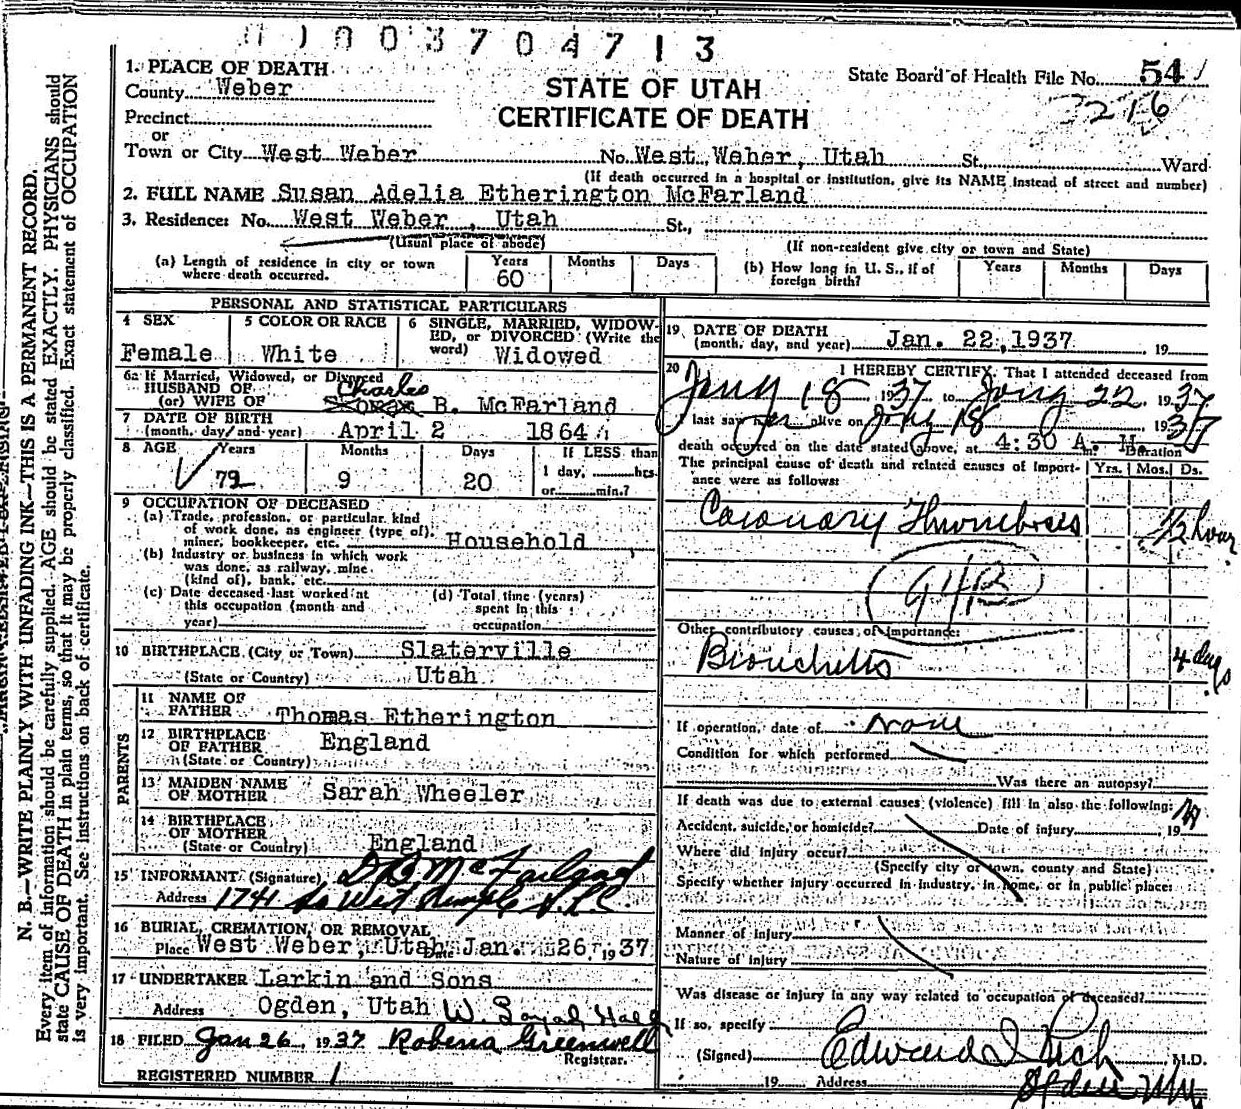 1003704713
1. PLACE OF DEATH
County Weber
Precinct
or
Town or City West Weber No. West Weber, Utah St., Ward
STATE OF UTAH
CERTIFICATE OF DEATH
State Board of Health File No. 54
3216
(If death occurred in a hospital or institution, give its NAME instead of street and number)
2. FULL NAME Susan Adelia Etherington McFarland
3. Residence: No. West Weber, Utah St.,
(Usual place of abode) (If non-resident give city or town and State)
(a) Length of residence in city or town where death occurred. Years 60 Months Days
(b) How long in U. S., if of foreign birth? Years Months Days
PERSONAL AND STATISTICAL PARTICULARS
4 SEX Female
5 COLOR OR RACE White
6 SINGLE, MARRIED, WIDOWED, or DIVORCED (Write the word) Widowed
6a If Married, Widowed, or Divorced
HUSBAND OF Charles
(or) WIFE OF B. McFarland
7 DATE OF BIRTH
(month, day, and year) April 2 1864
8 AGE Years 72 Months 9 Days 20 If LESS than 1 day, hrs. or min.?
9 OCCUPATION OF DECEASED
(a) Trade, profession, or particular kind
of work done, as engineer (type of),
miner, bookkeeper, etc. Household
(b) Industry or business in which work
was done, as railway, mine
(kind of), bank, etc.
(c) Date deceased last worked at
this occupation (month and
year)
(d) Total time (years)
spent in this
occupation
10 BIRTHPLACE (City or Town) Slaterville
(State or Country) Utah
PARENTS
11 NAME OF
FATHER Thomas Etherington
12 BIRTHPLACE
OF FATHER England
(State or Country)
13 MAIDEN NAME
OF MOTHER Sarah Wheeler
14 BIRTHPLACE
OF MOTHER
(State or Country) England
15 INFORMANT (Signature) D B McFarland
Address 1741 So West Temple S.L.C.
16 BURIAL, CREMATION, OR REMOVAL
Place West Weber, Utah Date Jan. 26, 1937
17 UNDERTAKER Larkin and Sons
Address Ogden, Utah W.
18 FILED Jan 26, 1937 Robena Greenwell
Registrar.
REGISTERED NUMBER 1
19 DATE OF DEATH
(month, day, and year) Jan. 22, 1937 19
20 I HEREBY CERTIFY, That I attended deceased from
Jany 18 1937 to Jany 22 1937
last saw her alive on Jany 18 1937
death occurred on the date stated above, at 4:30 A. M.
Duration
The principal cause of death and related causes of importance were as follows: Yrs. Mos. Ds.
Coronary Thrombosis 1/2 hour
94B
Other contributory causes of importance:
Bronchitis 4 days
If operation, date of none
Condition for which performed
Was there an autopsy?
If death was due to external causes (violence) fill in also the following:
Accident, suicide, or homicide? Date of injury 19
Where did injury occur?
(Specify city or town, county and State)
Specify whether injury occurred in industry, in home, or in public place:
Manner of injury
Nature of injury
Was disease or injury in any way related to occupation of deceased?
If so, specify
(Signed) Edward I Rich, M.D.
19 Address Ogden
N. B.—WRITE PLAINLY WITH UNFADING INK—THIS IS A PERMANENT RECORD.
Every item of information should be carefully supplied. AGE should be stated EXACTLY. PHYSICIANS should
state CAUSE OF DEATH in plain terms, so that it may be properly classified. Exact statement of OCCUPATION
is very important. See instructions on back of certificate.